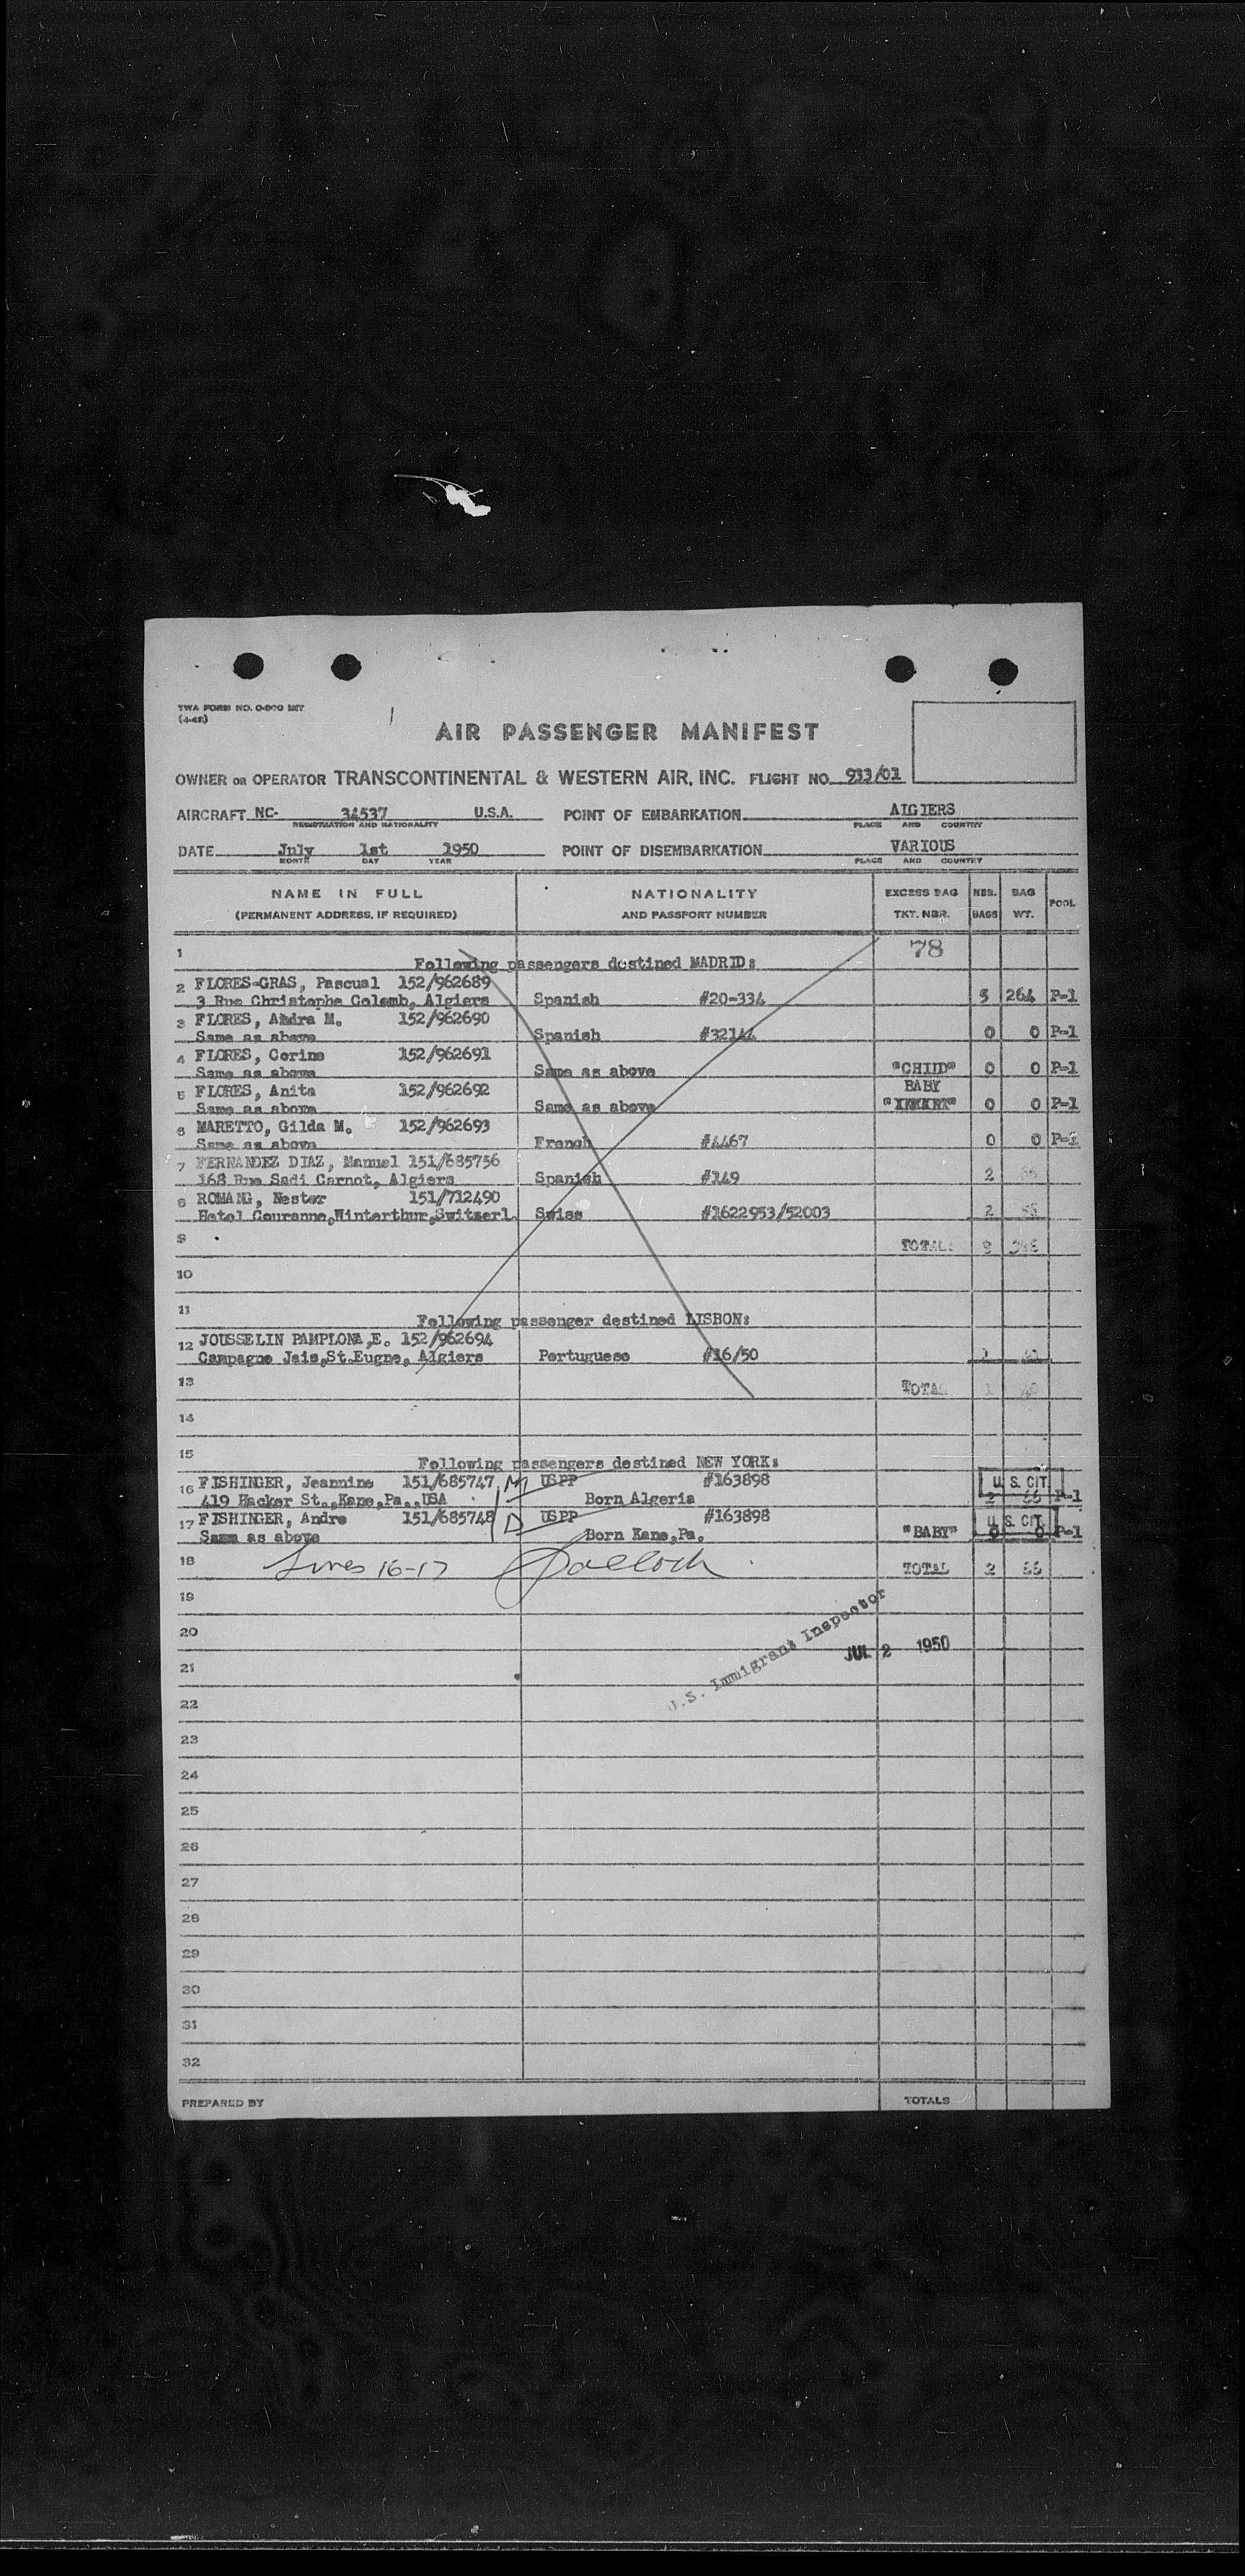 TWA FORM NO. O-800 INT
(4-48)
AIR PASSENGER MANIFEST
OWNER OR OPERATOR TRANSCONTINENTAL & WESTERN AIR, INC. FLIGHT NO. 933/01
AIRCRAFT NC- 34537 U.S.A. POINT OF EMBARKATION ALGIERS
REGISTRATION AND NATIONALITY PLACE AND COUNTRY
DATE July 1st 1950 POINT OF DISEMBARKATION VARIOUS
MONTH DAY YEAR PLACE AND COUNTRY
NAME IN FULL NATIONALITY EXCESS BAG NBR. BAG POOL
(PERMANENT ADDRESS, IF REQUIRED) AND PASSPORT NUMBER TKT. NBR. BAGS WT.
1 78
Following passengers destined MADRID:
2 FLORES-GRAS, Pascual 152/962689
3 Rue Christophe Colomb, Algiers Spanish #20-334 5 264 P-1
3 FLORES, Andra M. 152/962690
Same as above Spanish #32144 0 0 P-1
4 FLORES, Corine 152/962691
Same as above Same as above "CHILD" 0 0 P-1
5 FLORES, Anita 152/962692 BABY
Same as above Same as above 0 0 P-1
6 MARETTO, Gilda M. 152/962693
Same as above French #4467 0 0 P-1
7 FERNANDEZ DIAZ, Manuel 151/685756
168 Rue Sadi Carnot, Algiers Spanish #149 2
8 ROMANG, Nestor 151/712490
Hotel Couronne,Winterthur,Switzerl. Swiss #1622953/52003 2
9 TOTAL: 9
10
11
Following passenger destined LISBON:
12 JOUSSELIN PAMPLONA,E. 152/962694
Campagne Jais,St.Eugne, Algiers Portuguese #16/50 1
13 TOTAL 1
14
15
Following passengers destined NEW YORK:
16 FISHINGER, Jeannine 151/685747 M USPP #163898 U. S. CIT.
419 Hacker St.,Kane,Pa.,USA Born Algeria 2 66 P-1
17 FISHINGER, Andre 151/685748 D USPP #163898 U. S. CIT.
Same as above Born Kane,Pa. "BABY" 0 0 P-1
18 Lines 16-17 TOTAL 2 66
19
U.S. Immigrant Inspector
20
JUL 2 1950
21
22
23
24
25
26
27
28
29
30
31
32
PREPARED BY TOTALS